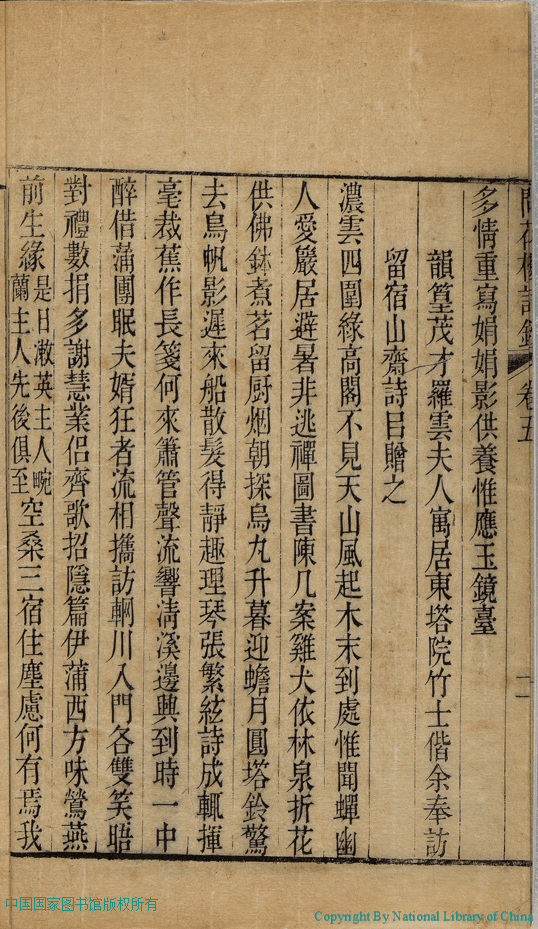 問花樓詩鈔 卷五
多情重寫娟娟影供養惟應玉鏡臺
韻篁茂才羅雲夫人寓居東塔院竹士偕余奉訪
留宿山齋詩㠯贈之
濃雲四圍綠高閣不見天山風起木末到處惟聞蟬幽
人愛巖居避暑非逃禪圖書陳几案雞犬依林泉折花
供佛鉢煮茗留厨烟朝探烏丸升暮迎蟾月圓塔鈴驚
去鳥帆影遲來船散髮得靜趣理琴張繁絃詩成輒揮
毫裁蕉作長箋何來簫管聲流響清溪邊興到時一中
醉借蒲團眠夫婿狂者流相攜訪輞川入門各雙笑晤
對禮數捐多謝慧業侶齊歌招隱篇伊蒲西方味鶯燕
前生緣是日漱英主人畹蘭主人先後俱至空桑三宿住塵慮何有焉我
中国国家图书馆版权所有
Copyright By National Library of China